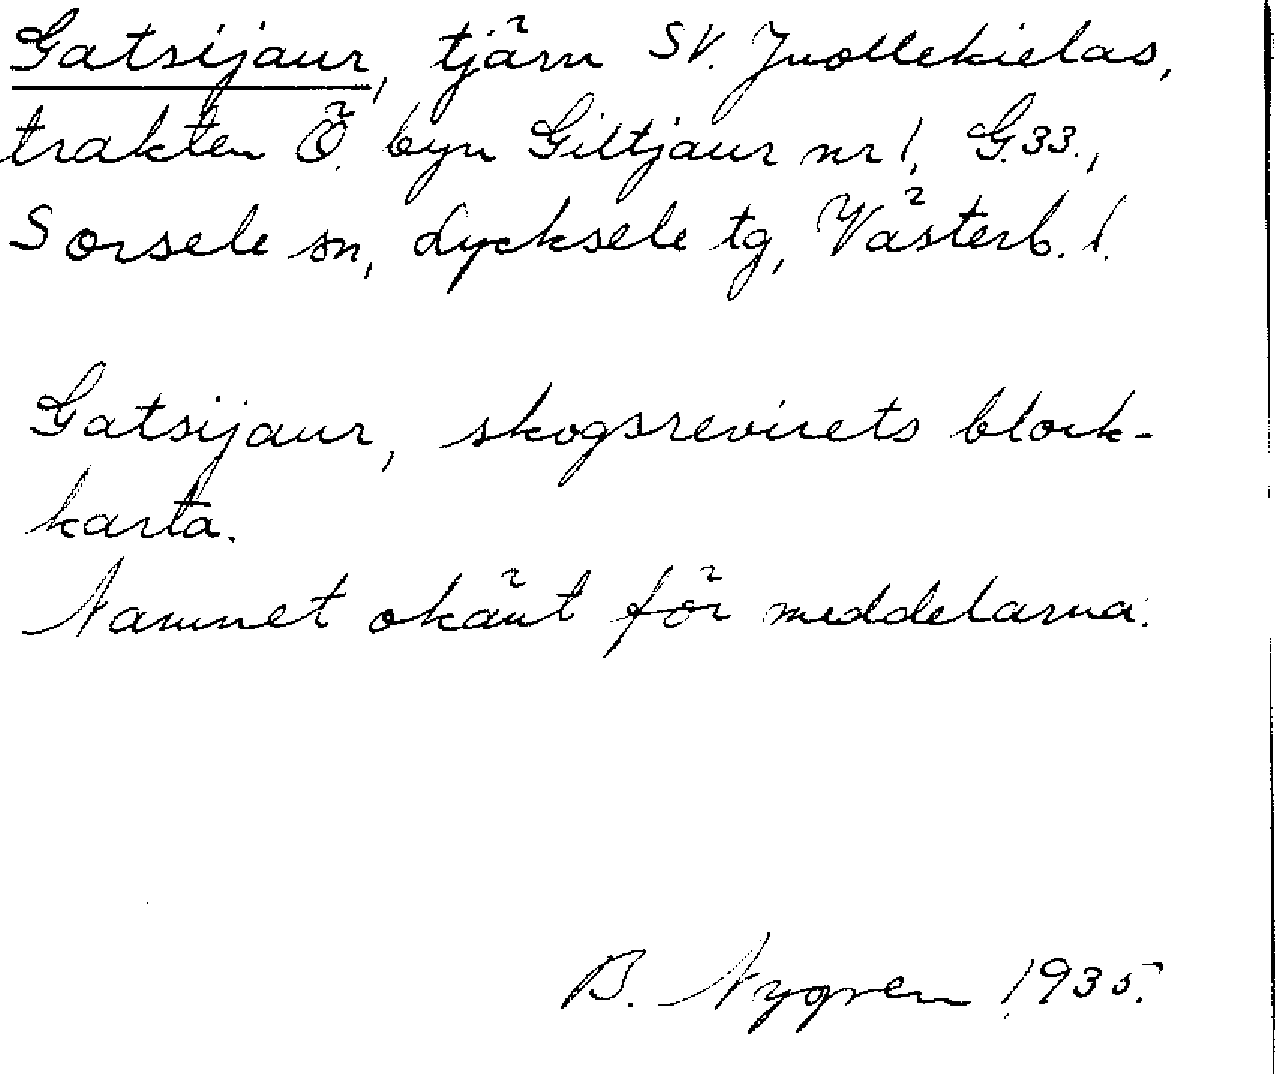 Gatsijaur, tjärn SV. Juollekielas,
trakten Ö. byn Giltjaur nr 1, G.33.,
Sorsele sn, Lycksele tg, Västerb. l.
Gatsijaur, skogsrevirets block-
karta.
Namnet okänt för meddelarna.
B. Nygren 1935.